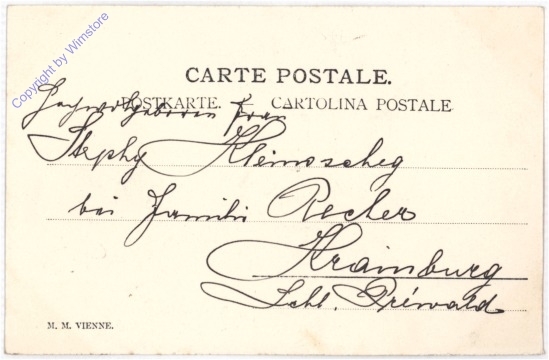 Copyright by Wimstore
CARTE POSTALE.
POSTKARTE. – CARTOLINA POSTALE
Hochwohlgeboren Frau
Stephy Kleinoscheg
bei Familie Recher
Krainburg
Schl. Prewald
M. M. VIENNE.